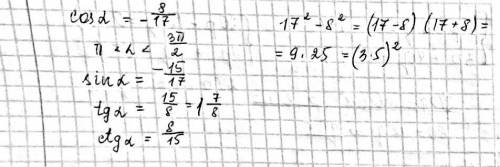 cos α = -8/17
π < α < 3π/2
sin α = -15/17
tg α = 15/8 = 1 7/8
ctg α = 8/15
17² - 8² = (17-8) (17+8) =
= 9 · 25 = (3·5)²